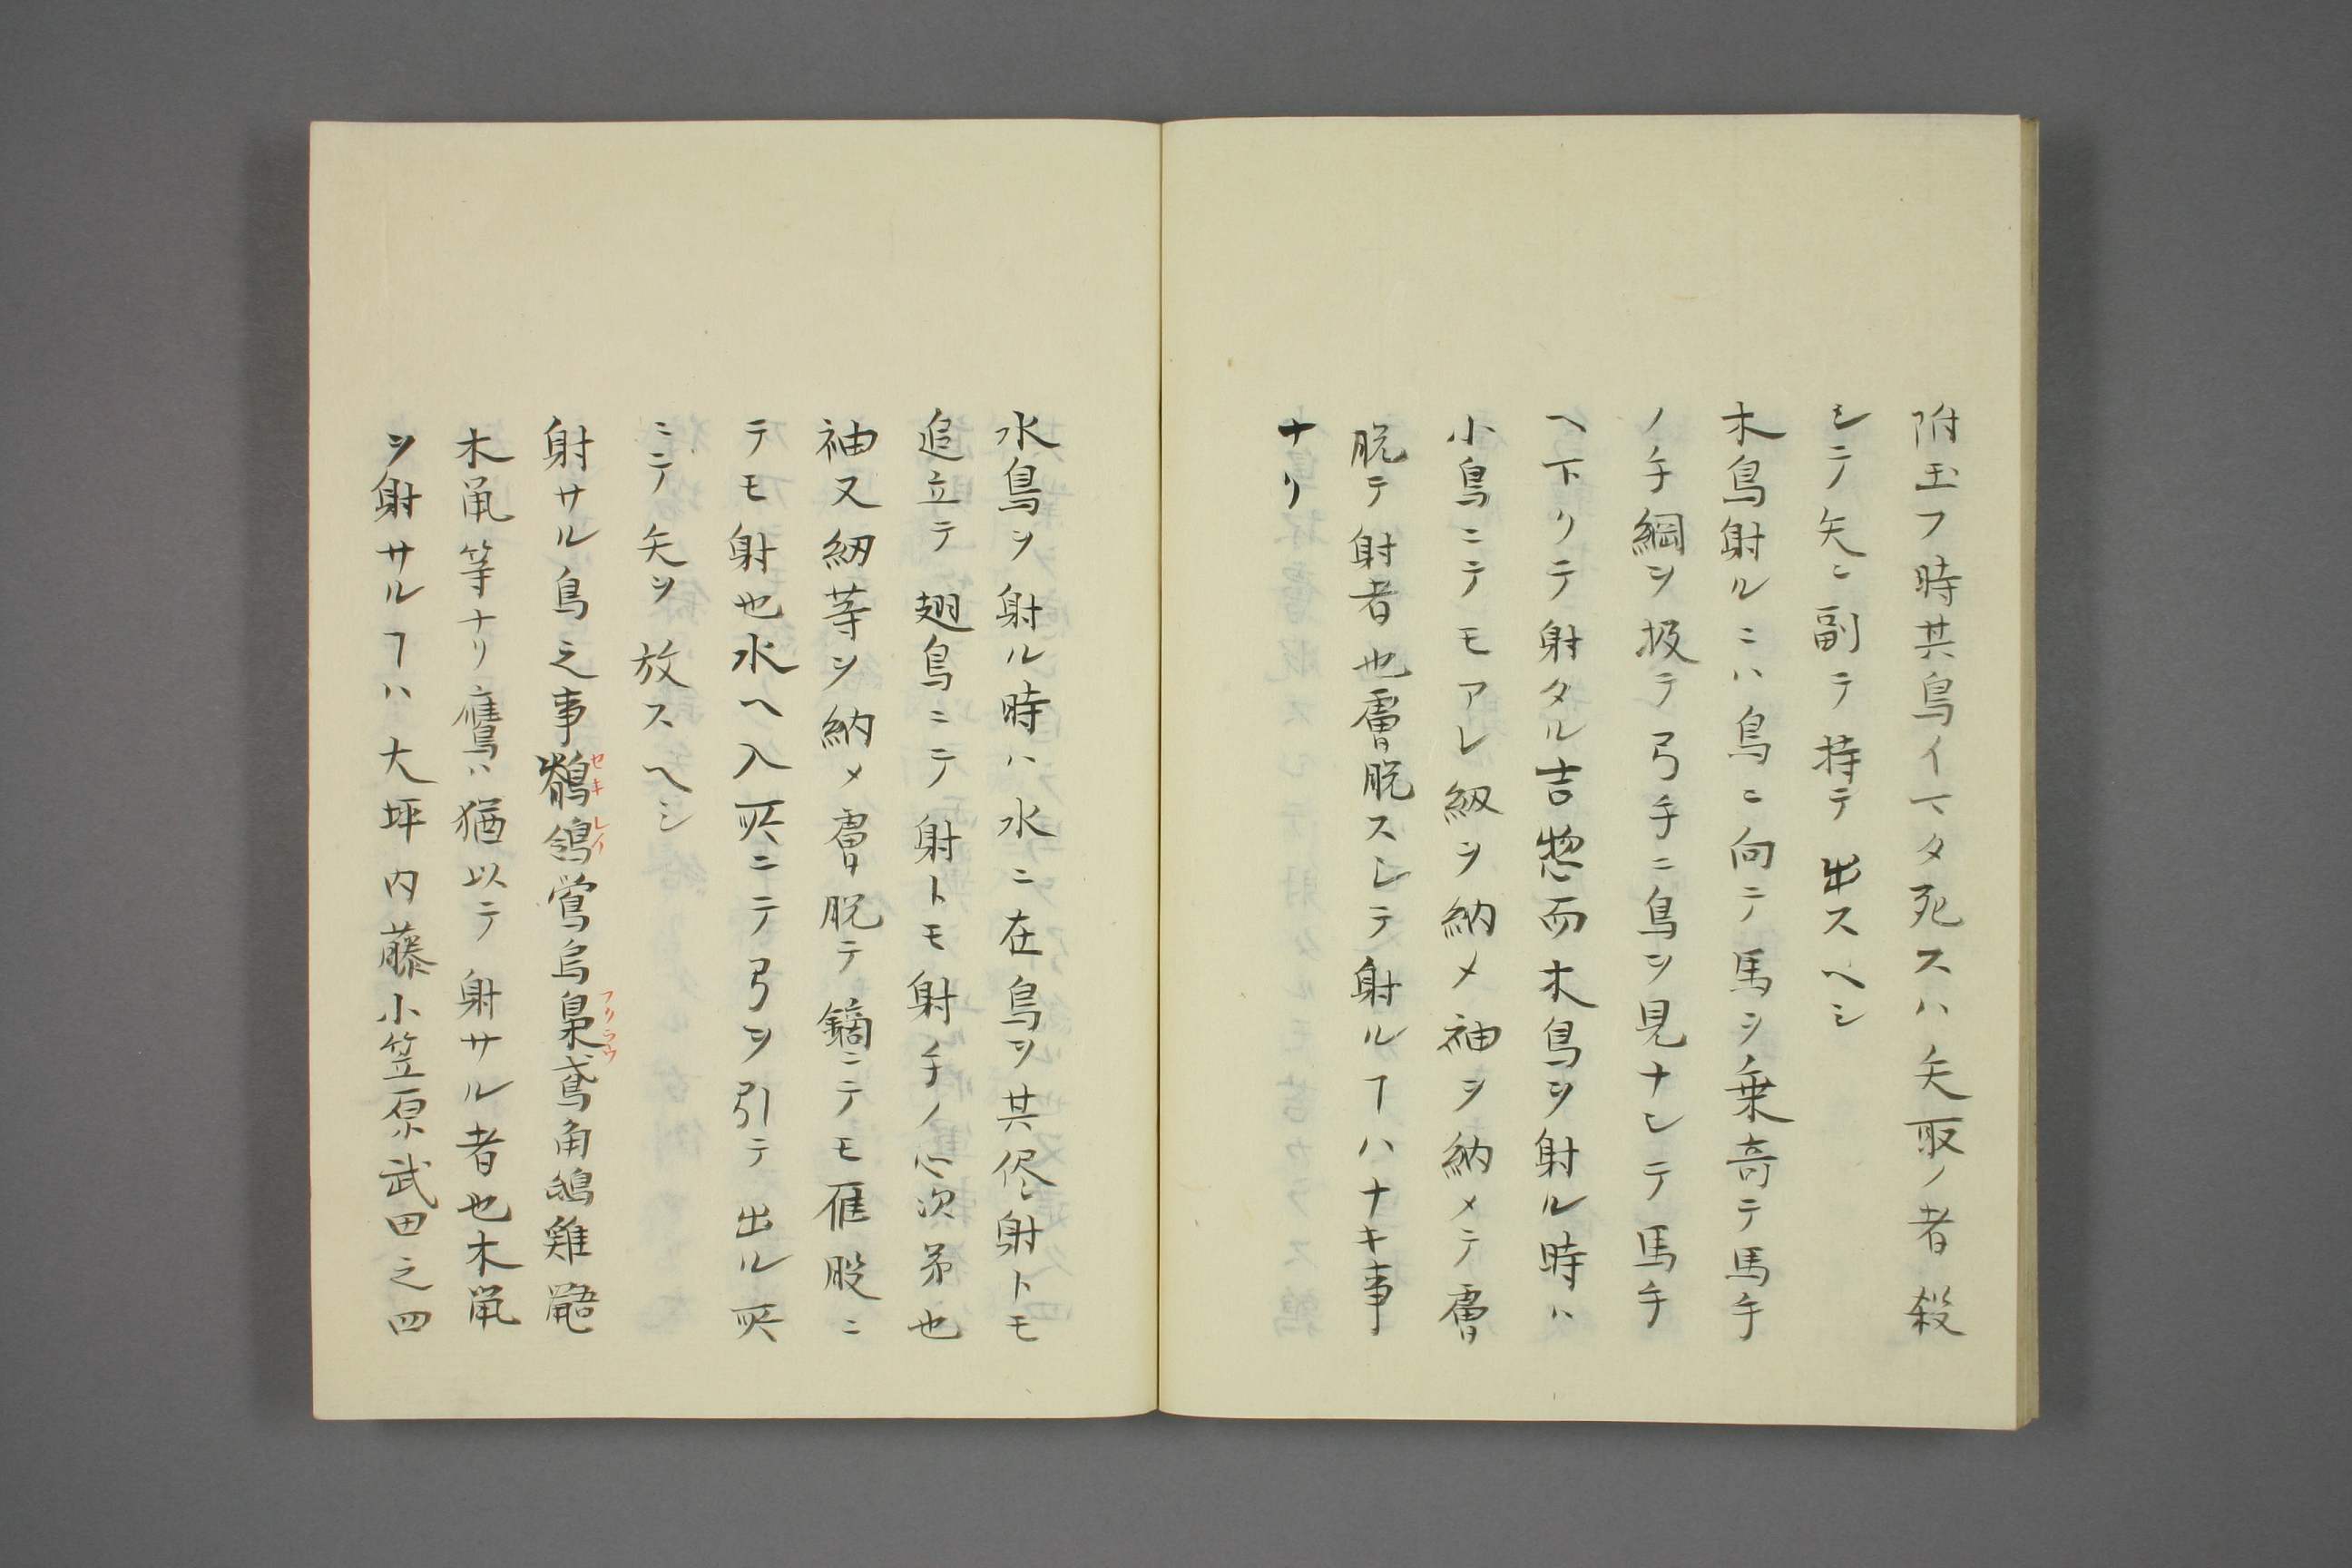 附玉フ時其鳥イマタ死スハ矢取ノ者殺
シテ矢ニ副テ持テ出スヘシ
木鳥射ルニハ鳥ニ向テ馬ヲ乗寄テ馬手
ノ手綱ヲ扱テ弓手ニ鳥ヲ見ナシテ馬手
ヘ下リテ射タル吉惣而木鳥ヲ射ル時ハ
小鳥ニテモアレ納メ袖ヲ納メテ膚
脱テ射者也膚脱スシテ射ルヿハナキ事
ナリ
水鳥ヲ射ル時ハ水ニ在鳥ヲ其侭射トモ
追立テ翅鳥ニテ射トモ射手ノ心次第也
袖又等ヲ納メ膚脱テ鏑ニテモ雁股ニ
テモ射也水ヘ入所ニテ弓ヲ引テ出ル所
ニテ矢ヲ放スヘシ
射サル鳥之事鶺鴒鶯烏梟鳶角鴟雞鼯
セキレイ
フクラウ
木鼠等ナリ鷹ハ猶以テ射サル者也木鼠
ヲ射サルヿハ大坪内藤小笠原武田之四